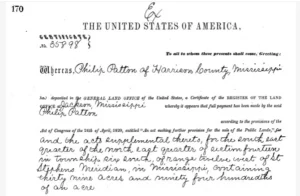 170
Ex
THE UNITED STATES OF AMERICA,
CERTIFICATE
No. 35898
To all to whom these presents shall come, Greeting:
Whereas Philip Patton of Harrison County, Mississippi
has deposited in the GENERAL LAND OFFICE of the United States, a Certificate of the REGISTER OF THE LAND
OFFICE at Jackson, Mississippi whereby it appears that full payment has been made by the said
Philip Patton
according to the provisions of the
Act of Congress of the 24th of April, 1820, entitled "An act making further provision for the sale of the Public Lands," for
and the acts supplemental thereto, for the south east
quarter of the north east quarter of section fourteen
in Township six south, of range twelve west of St
Stephens Meridian, in Mississippi, containing
thirty nine acres and ninety four hundredths
of an acre